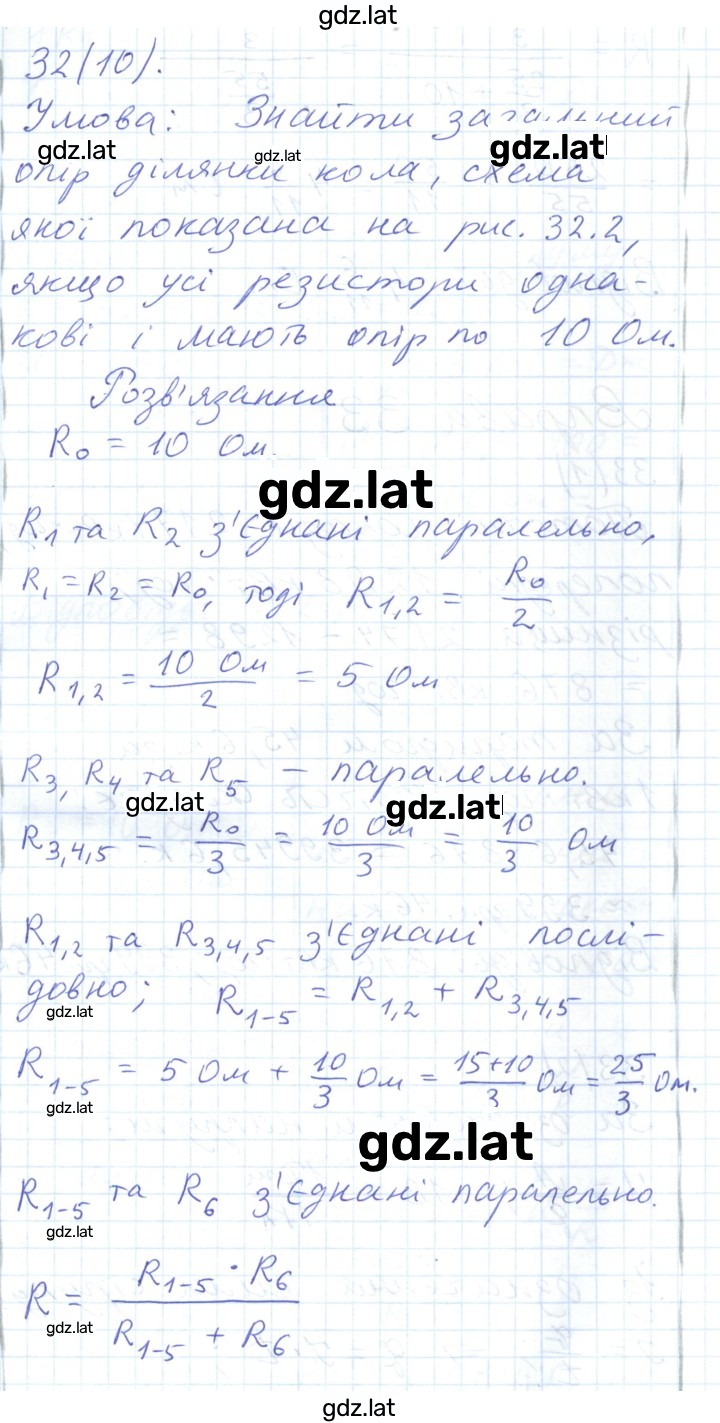 gdz.lat
32(10).
Умова: Знайти загальний
gdz.lat gdz.lat gdz.lat
опір ділянки кола, схема
якої показана на рис. 32.2,
якщо усі резистори одна-
кові і мають опір по 10 Ом.
Розв'язання
R₀ = 10 Ом.
gdz.lat
R₁ та R₂ з'єднані паралельно,
R₁ = R₂ = R₀, тоді R₁,₂ = R₀/2
R₁,₂ = 10 Ом/2 = 5 Ом
R₃, R₄ та R₅ – паралельно.
gdz.lat gdz.lat
R₃,₄,₅ = R₀/3 = 10 Ом/3 = 10/3 Ом
R₁,₂ та R₃,₄,₅ з'єднані послі-
довно; R₁₋₅ = R₁,₂ + R₃,₄,₅
gdz.lat
R₁₋₅ = 5 Ом + 10/3 Ом = 15+10/3 Ом = 25/3 Ом.
gdz.lat
gdz.lat
R₁₋₅ та R₆ з'єднані паралельно.
gdz.lat
R = R₁₋₅ · R₆/R₁₋₅ + R₆
gdz.lat
gdz.lat